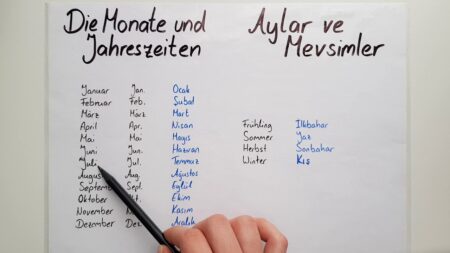 Die Monate und
Jahreszeiten
Aylar ve
Mevsimler
Januar Jan. Ocak
Februar Feb. Şubat
März März Mart
April Apr. Nisan
Mai Mai Mayıs
Juni Jun. Haziran
Juli Jul. Temmuz
August Aug. Ağustos
September Sept. Eylül
Oktober Ekim
November Kasım
Dezember Aralık
Frühling İlkbahar
Sommer Yaz
Herbst Sonbahar
Winter Kış